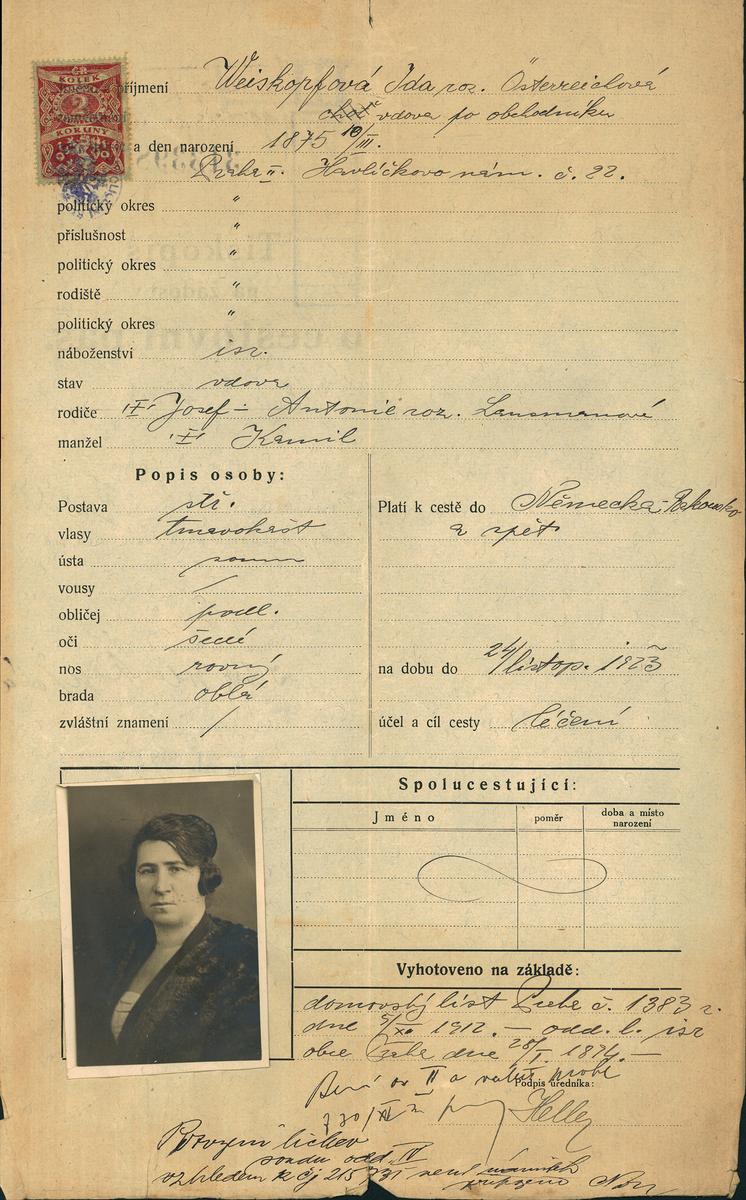 KOLEK
2
KORUNY
příjmení Weiskopfová Ida roz. Österreichová
vdova po obchodníku
a den narození 1875 10/III.
Praha II. Havlíčkovo nám. č. 22.
politický okres "
příslušnost "
politický okres "
rodiště "
politický okres "
náboženství isr.
stav vdova
rodiče Josef – Antonie roz.
manžel Kamil
Popis osoby:
Postava stř.
vlasy tmavokašt
ústa soum
vousy /
obličej podl.
oči šedé
nos rovný
brada oblá
zvláštní znamení /
Platí k cestě do Německa - Rakousko
a zpět
na dobu do 24/listop. 1923
účel a cíl cesty léčení
Spolucestující:
Jméno
poměr
doba a místo
narození
Vyhotoveno na základě:
domovský list Praha č. 1383 z.
dne 5/XII 1912. – odd. l. isr
obce Praha dne 28/I. 1874. –
II a
Podpis úředníka:
Heller
odd. IV
vzhledem k čj